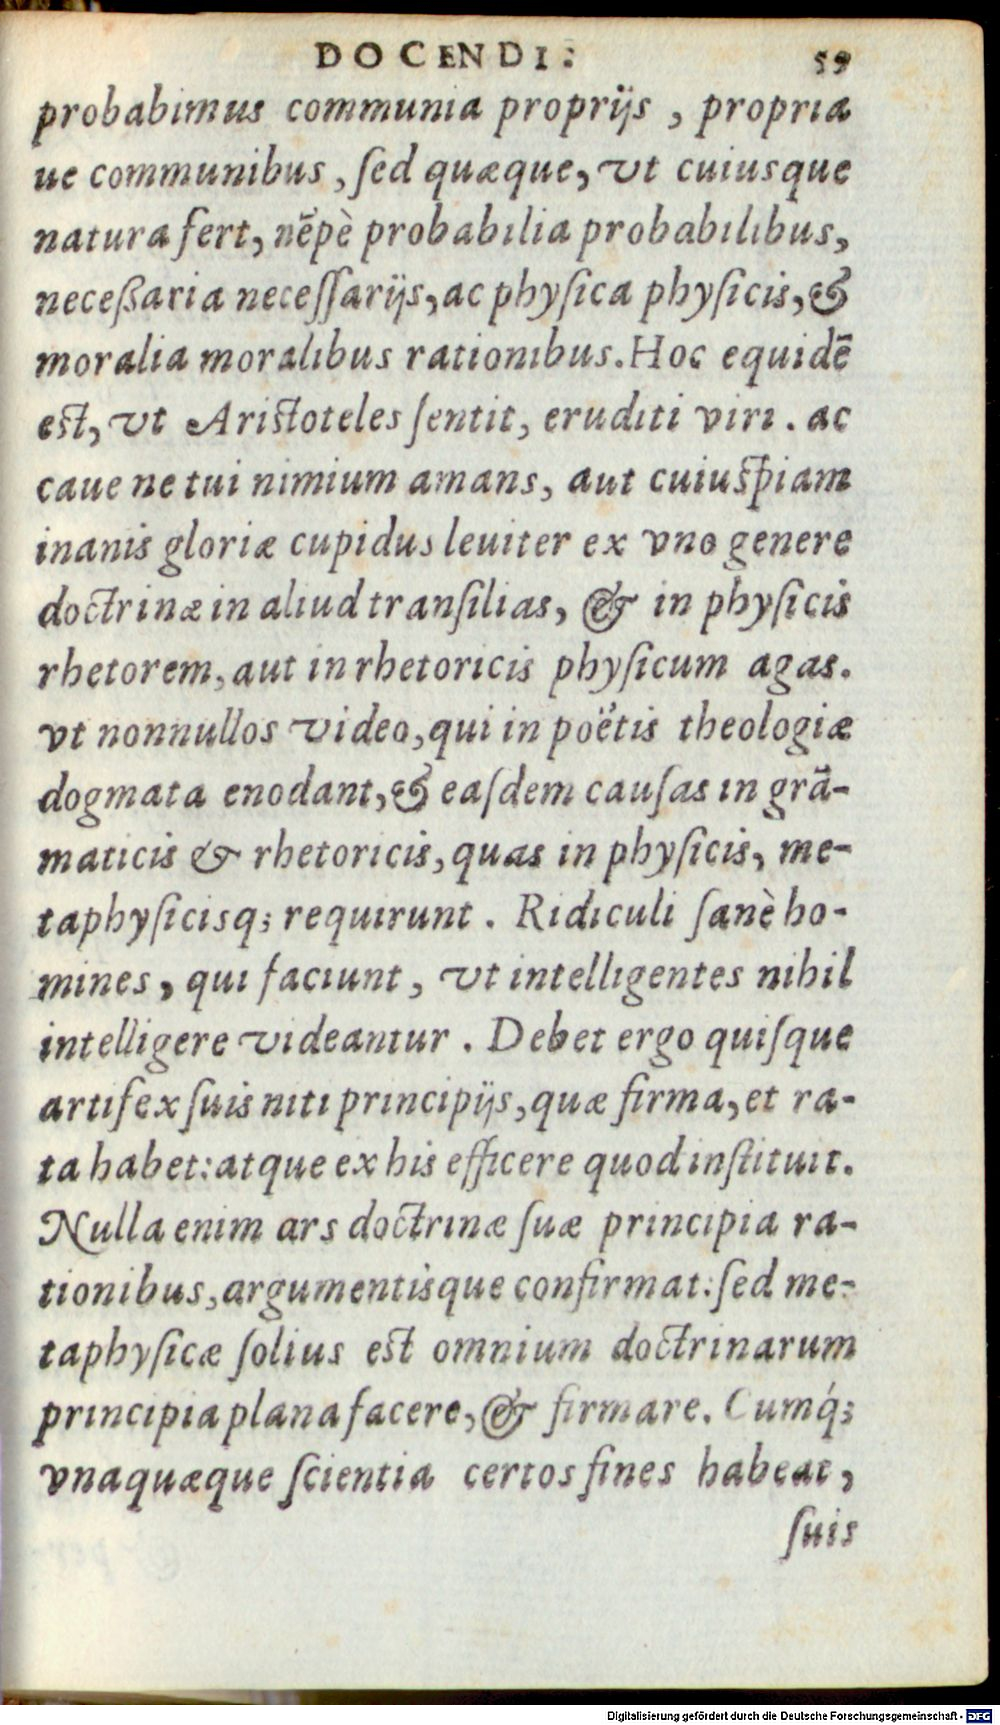 DOCENDI: 59
probabimus communia proprijs, propria
ue communibus, ſed quæque, vt cuiusque
natura fert, nēpè probabilia probabilibus,
neceßaria neceſſarijs, ac phyſica phyſicis, &
moralia moralibus rationibus. Hoc equidē
est, vt Aristoteles ſentit, eruditi viri. ac
caue ne tui nimium amans, aut cuiuspiam
inanis gloriæ cupidus leuiter ex vno genere
doctrinæ in aliud tranſilias, & in phyſicis
rhetorem, aut in rhetoricis phyſicum agas.
vt nonnullos video, qui in poëtis theologiæ
dogmata enodant, & eaſdem cauſas in grā-
maticis & rhetoricis, quas in phyſicis, me-
taphyſicisq; requirunt. Ridiculi ſanè ho-
mines, qui faciunt, vt intelligentes nihil
intelligere videantur. Debet ergo quiſque
artifex ſuis niti principijs, quæ firma, et ra-
ta habet: atque ex his efficere quod inſtituit.
Nulla enim ars doctrinæ ſuæ principia ra-
tionibus, argumentisque confirmat: ſed me-
taphyſicæ ſolius est omnium doctrinarum
principia plana facere, & firmare. Cumq́;
vnaquæque ſcientia certos fines habeat,
ſuis
Digitalisierung gefördert durch die Deutsche Forschungsgemeinschaft - DFG